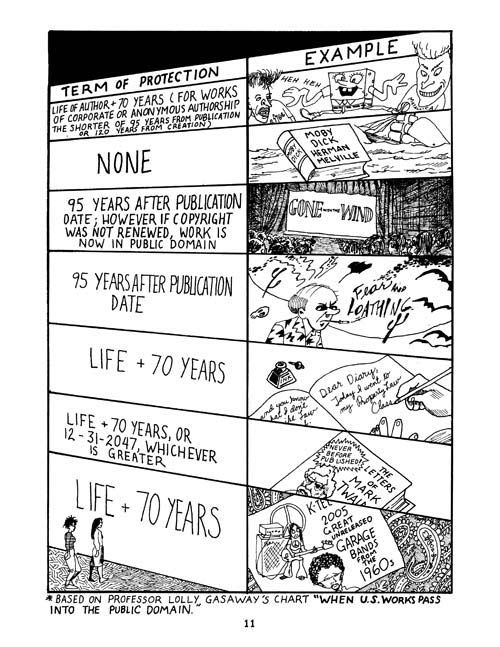 TERM OF PROTECTION
EXAMPLE
LIFE OF AUTHOR + 70 YEARS (FOR WORKS
OF CORPORATE OR ANONYMOUS AUTHORSHIP
THE SHORTER OF 95 YEARS FROM PUBLICATION
OR 120 YEARS FROM CREATION)
HEH HEH
NONE
MOBY
DICK
HERMAN
MELVILLE
MOBY
DICK
95 YEARS AFTER PUBLICATION
DATE; HOWEVER IF COPYRIGHT
WAS NOT RENEWED, WORK IS
NOW IN PUBLIC DOMAIN
GONE WITH THE WIND
95 YEARS AFTER PUBLICATION
DATE
Fear AND
LOATHING
LIFE + 70 YEARS
and you know
what I don't
the Law
Dear Diary,
Today I went to
my Property Law
Class
LIFE + 70 YEARS, OR
12-31-2047, WHICHEVER
IS GREATER
NEVER
BEFORE
PUBLISHED!
THE
LETTERS
OF
MARK
TWAIN
LIFE + 70 YEARS
K-TEL
2005
GREAT
UNRELEASED
GARAGE
BANDS
FROM
THE
1960s
* BASED ON PROFESSOR LOLLY GASAWAY'S CHART "WHEN U.S. WORKS PASS
INTO THE PUBLIC DOMAIN."
11